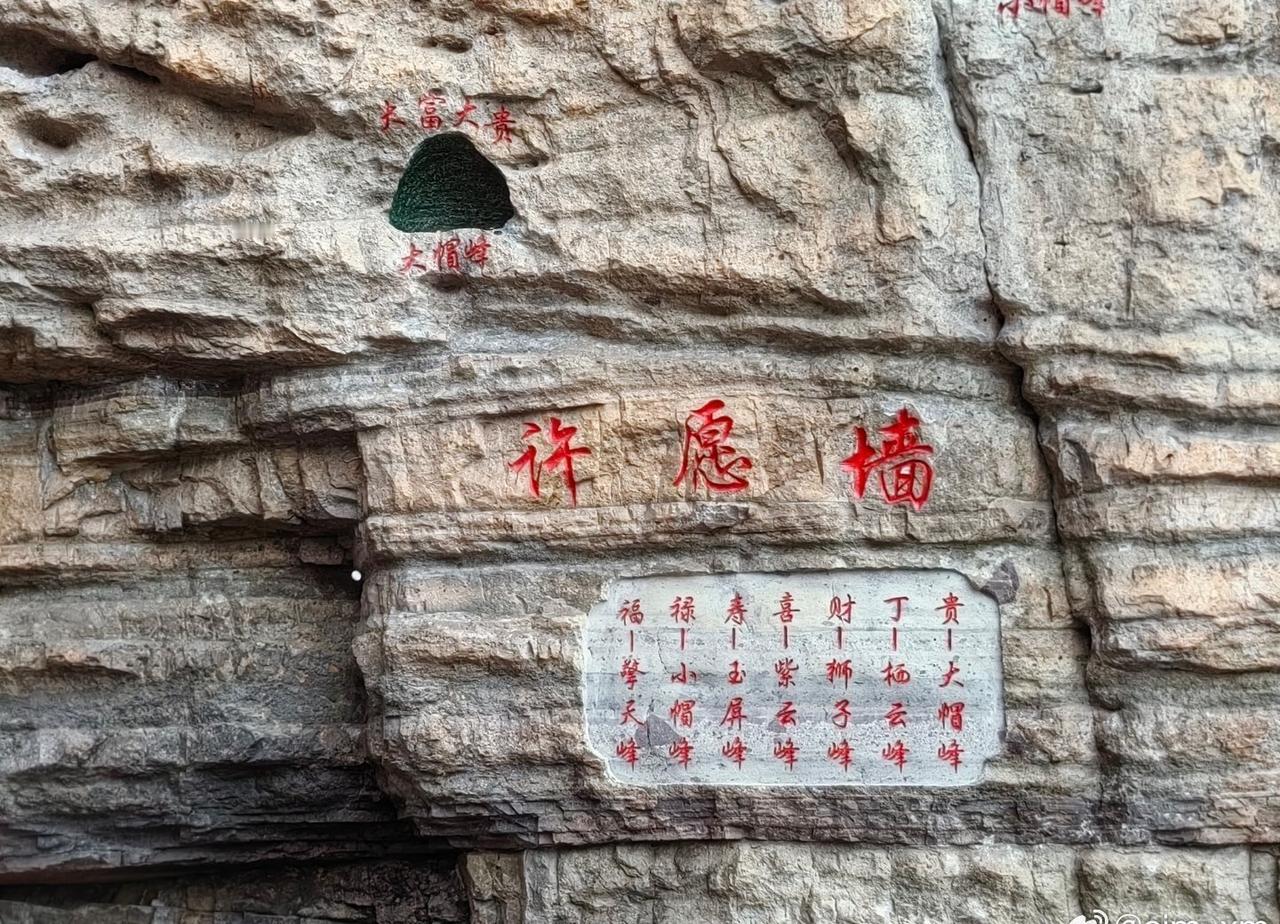 小帽峰
大富大贵
大帽峰
许愿墙
福—擎天峰
禄—小帽峰
寿—玉屏峰
喜—紫云峰
财—狮子峰
丁—栖云峰
贵—大帽峰